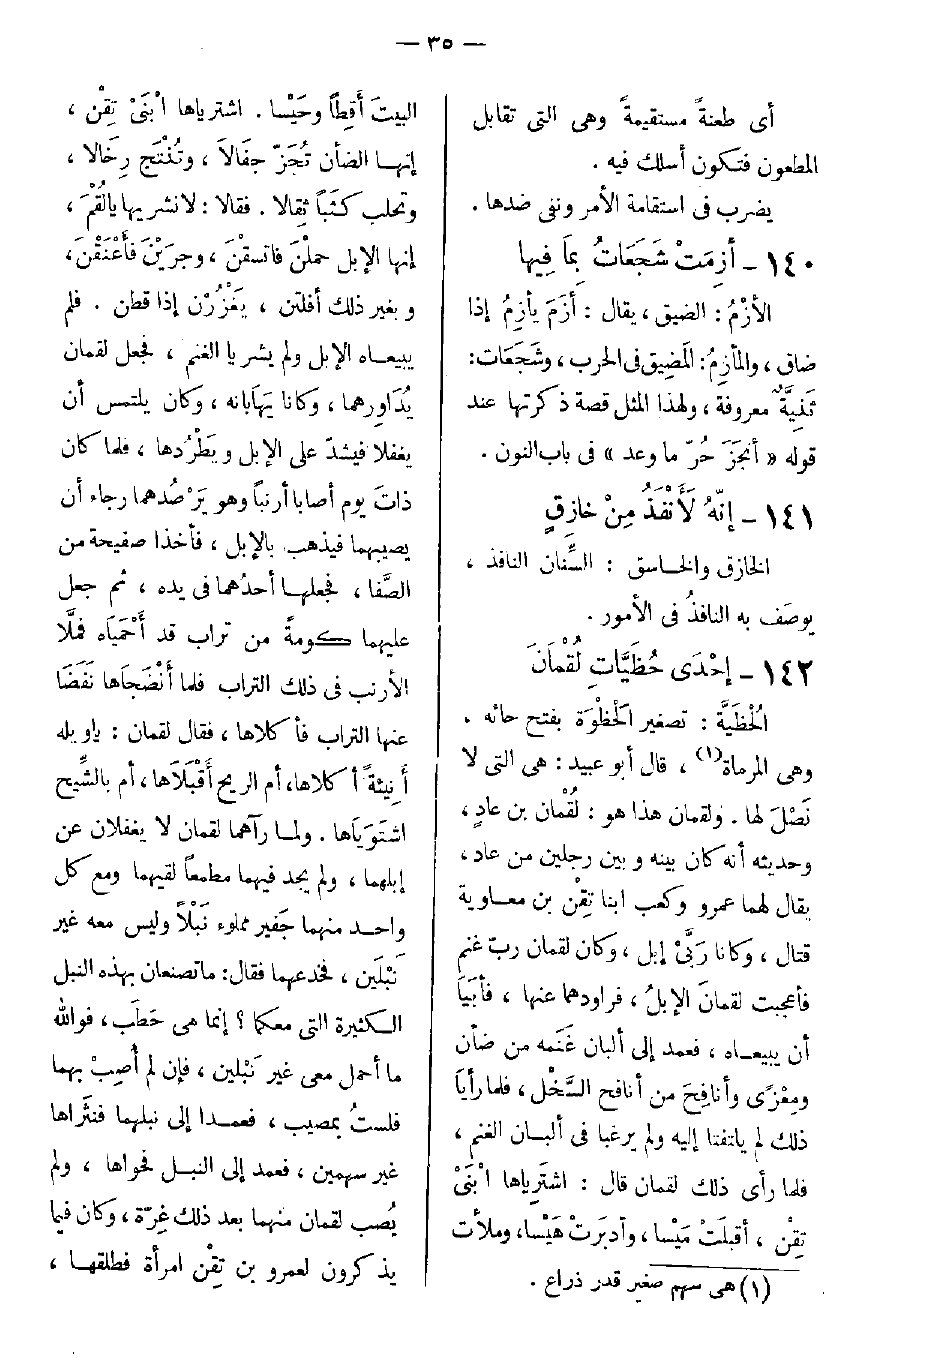 — ٣٥ —
أى طعنةً مستقيمةً وهى التى تقابل
المطعون فتكون أسلك فيه .
يضرب فى استقامة الأمر ونفى ضدها .
١٤٠ – أَزِمَتْ شَجَعَاتُ بِمَا فِيها
الأزْمُ : الضيق ، يقال : أَزَمَ يَأزِمُ إذا
ضاق ، والمأزِمُ : المَضِيق فى الحرب ، وشَجَعَات :
ثَنِيَّةٌ معروفة ، ولهذا المثل قصة ذكرتها عند
قوله « أَنْجَزَ حُرّ ما وعد » فى باب النون .
١٤١ – إنَّهُ لَأَنْفَذُ مِنْ خازِقٍ
الخازق والخاسق : السِّنان النافذ ،
يوصَف به النافذُ فى الأمور .
١٤٢ – إحْدَى حُظَيَّاتِ لُقْمَانَ
الحُظَيَّة : تصغير الحَظْوَة بفتح حائه .
وهى المرماة(١) ، قال أبو عبيد : هى التى لا
نَصْلَ لها . ولقمان هذا هو : لُقْمان بن عادٍ ،
وحديثه أنه كان بينه وبين رجلين من عاد ،
يقال لهما عمرو وكعب ابنا تِقْن بن معاوية
قتال ، وكانا رَبَّىْ إبل ، وكان لقمان ربّ غنم
فأعجبت لقمانَ الإبلُ ، فراودهما عنها ، فأبَيَا
أن يبيعاه ، فعمد إلى ألبان غَنَمه من ضأن
ومِعْزًى وأنافِحَ من أنافح السَّخْل ، فلما رأيَا
ذلك لم يلتفتا إليه ولم يرغبا فى ألبان الغنم ،
فلما رأى ذلك لقمان قال : اشتَرِياها ابْنَىْ
تِقْن ، أقبلَتْ مَيْسا ، وأدبَرَتْ هَيْسا ، وملأت
(١) هى سهم صغير قدر ذراع .
البيتَ أَقِطاً وحَيْسا . اشترياها ابْنَىْ تِقْن ،
إنها الضأن تُجَزّ جفَالاً ، وتُنْتَج رِخَالا ،
وتحلب كُثَباً ثِقالا . فقالا : لا نشريها يالُقْمَ ،
إنها الإبل حملْنَ فاتسقْنَ ، وجرَيْنَ فأَعْنَقْنَ ،
وبغير ذلك أفلتن ، يَغْزُرْن إذا قطن . فلم
يبيعاه الإبل ولم يشريا الغنم ، فجعل لقمان
يُدَاورهما ، وكانا يَهَابانه ، وكان يلتمس أن
يغفلا فيشدّ على الإبل ويَطْرُدها ، فلما كان
ذاتَ يوم أصابا أرنباً وهو يَرْصُدهما رجاء أن
يصيبهما فيذهب بالإبل ، فأخذا صفيحة من
الصَّفا ، فجعلها أحدُهما فى يده ، ثم جعل
عليهما كومةً من تراب قد أَحْمَيَاه فَمَلَّا
الأرنب فى ذلك التراب فلما أَنْضَجَاها نَفَضَا
عنها التراب فأكلاها ، فقال لقمان : ياويله
أنِيئةً أكلاها ، أم الريح أَقْبَلَاها ، أم بالشِّيح
اشتَوَيَاها . ولما رآهما لقمان لا يغفلان عن
إبلهما ، ولم يجد فيهما مطمعاً لقيهما ومع كل
واحد منهما جَفير مملوء نَبْلاً وليس معه غير
نَبْلَين ، فخدعهما فقال : ماتصنعان بهذه النبل
الكثيرة التى معكما ؟ إنما هى حَطَب ، فوالله
ما أحمل معى غير نَبْلين ، فإن لم أُصِبْ بهما
فلستُ بمصيب ، فعمدا إلى نبلهما فنثَراها
غير سهمين ، فعمد إلى النبل فحواها ، ولم
يُصب لقمان منهما بعد ذلك غِرّة ، وكان فيما
يذكرون لعمرو بن تِقْن امرأة فطلقها ،